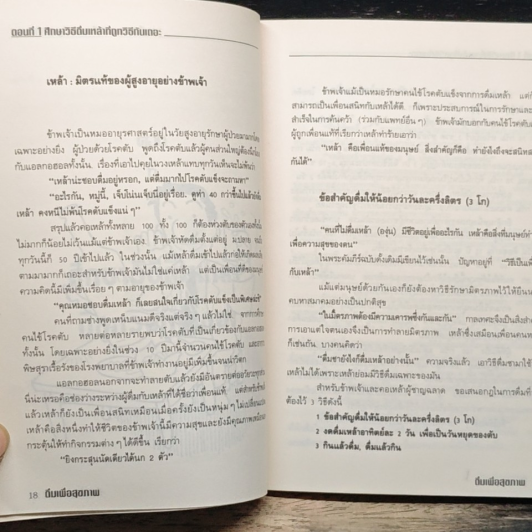 ตอนที่ 1 ศึกษาวิธีดื่มเหล้าที่ถูกวิธีกันเถอะ
เหล้า : มิตรแท้ของผู้สูงอายุอย่างข้าพเจ้า
ข้าพเจ้าเป็นหมออายุรศาสตร์อยู่ในวัยสูงอายุรักษาผู้ป่วยมา
เฉพาะอย่างยิ่ง ผู้ป่วยด้วยโรคตับ พูดถึงโรคตับแล้วผู้คนส่วนใหญ่
กับแอลกอฮอล์ทั้งนั้น เรื่องที่เอาไปคุยในวงเหล้าแทบทุกวันเห็นจะไม่พ้น
"เหล้าน่ะชอบดื่มอยู่หรอก, แต่ดื่มมากไปโรคตับแข็งจะถามหา"
"อะไรกัน, หมู่นี้, เจ็บโน่นเจ็บนี่อยู่เรื่อย, ดูท่า 40 กว่าขึ้นไปแล้ว
เหล้า คงหนีไม่พ้นโรคตับแข็งแน่ ๆ"
สรุปแล้วเหล้าทั้งหลาย 100 ทั้ง 100 ก็ต้องห่วงตับของตัวเอง
ไม่มากก็น้อยไม่เว้นแม้แต่ข้าพเจ้าเอง ข้าพเจ้าหัดดื่มตั้งแต่อยู่ ม.ปลาย
ทุกวันนี้ก็ 50 ปีเข้าไปแล้ว ในช่วงนั้น แม้เหล้าดื่มเข้าไปแล้ว
ตามมามากก็เถอะสำหรับข้าพเจ้ามันไม่ใช่แค่เหล้า แต่เป็นเพื่อนที่ดีของมนุษย์
ความคิดนี้มีเพิ่มขึ้นเรื่อย ๆ ตามอายุของข้าพเจ้า
"คุณหมอชอบดื่มเหล้า ก็เลยสนใจเกี่ยวกับโรคตับแข็งเป็นพิเศษล่ะ"
คนที่ถามช่างพูดเหน็บแนมดีจริงแต่จริง ๆ แล้วไม่ใช่
คนไข้โรคตับ หลายต่อหลายรายพบว่าโรคตับที่เป็นเกี่ยวข้องกับแอลกอฮอล์
ทั้งนั้น โดยเฉพาะอย่างยิ่งในช่วง 10 ปีมานี้จำนวนคนไข้โรคตับ
พิษสุราเรื้อรังของโรงพยาบาลที่ข้าพเจ้าทำงานอยู่มีเพิ่มขึ้นจนน่าวิตก
แอลกอฮอล์นอกจากจะทำลายตับแล้วยังมีอันตราย
นี่น่ะหรอคือช่องว่างระหว่างผู้ดื่มกับเหล้าที่ได้ชื่อว่าเพื่อนแท้
แล้วเหล้าก็ยังเป็นเพื่อนสนิทเหมือนเมื่อครั้งยังเป็นหนุ่ม ๆ ไม่เปลี่ยน
เหล้าคือสิ่งหนึ่งทำให้ชีวิตของข้าพเจ้านี้มีความสุขและยังมีคุณภาพ
กระตุ้นให้ทำกิจกรรมต่าง ๆ ได้ดีขึ้น เรียกว่า
"ยิงกระสุนนัดเดียวได้นก 2 ตัว"
18 ดื่มเพื่อสุขภาพ
ข้าพเจ้าแม้เป็นหมอรักษาคนไข้โรคตับแข็งจากการดื่มเหล้า แต่ก็
สามารถเป็นเพื่อนสนิทกับเหล้าได้ดี ก็เพราะประสบการณ์ในการรักษาและ
สำเร็จในการค้นคว้า (ร่วมกับแพทย์อื่น ๆ) ข้าพเจ้ามักบอกกับคนไข้โรคตับ
ผู้ถูกเพื่อนแท้ที่เรียกว่าเหล้าทำร้ายเอาว่า
"เหล้า คือเพื่อนแท้ของมนุษย์ สิ่งสำคัญก็คือ ทำยังไงถึงจะสนิท
กันได้"
ข้อสำคัญดื่มให้น้อยกว่าวันละครึ่งลิตร (3 โก)
"คนที่ไม่ดื่มเหล้า (องุ่น) มีชีวิตอยู่เพื่ออะไรกัน เหล้าคือสิ่งที่มนุษย์
เพื่อความสุขของตน"
ในพระคัมภีร์ฉบับดั้งเดิมมีเขียนไว้เช่นนั้น ปัญหาอยู่ที่ "วิธีเป็น
กับเหล้า"
แม้แต่มนุษย์ด้วยกันเองก็ยังต้องหาวิธีรักษามิตรภาพไว้ให้ยืน
คบหาสมาคมอย่างเป็นปกติสุข
"ในมิตรภาพต้องมีความเคารพซึ่งกันและกัน" กาลเทศะจึงเป็นสิ่งสำ
การเอาแต่ใจตนเองจึงเป็นการทำลายมิตรภาพ เหล้าซึ่งเสมือนเพื่อน
ก็เช่นกัน บางคนคิดว่า
"ดื่มซายังไงก็ดื่มเหล้าอย่างนั้น" ความจริงแล้ว เอาวิธีดื่มชามาใช้
เหล้าไม่ได้เพราะเหล้าย่อมมีวิธีดื่มเฉพาะของมัน
สำหรับข้าพเจ้าและคอเหล้าผู้ชาญฉลาด ขอเสนอกฎในการดื่ม
ต้องไว้ 3 วิธีดังนี้
1 ข้อสำคัญดื่มให้น้อยกว่าวันละครึ่งลิตร (3 โก)
2 งดดื่มเหล้าอาทิตย์ละ 2 วัน เพื่อเป็นวันหยุดของตับ
3 กินแล้วดื่ม, ดื่มแล้วกิน
ดื่มเพื่อสุขภาพ